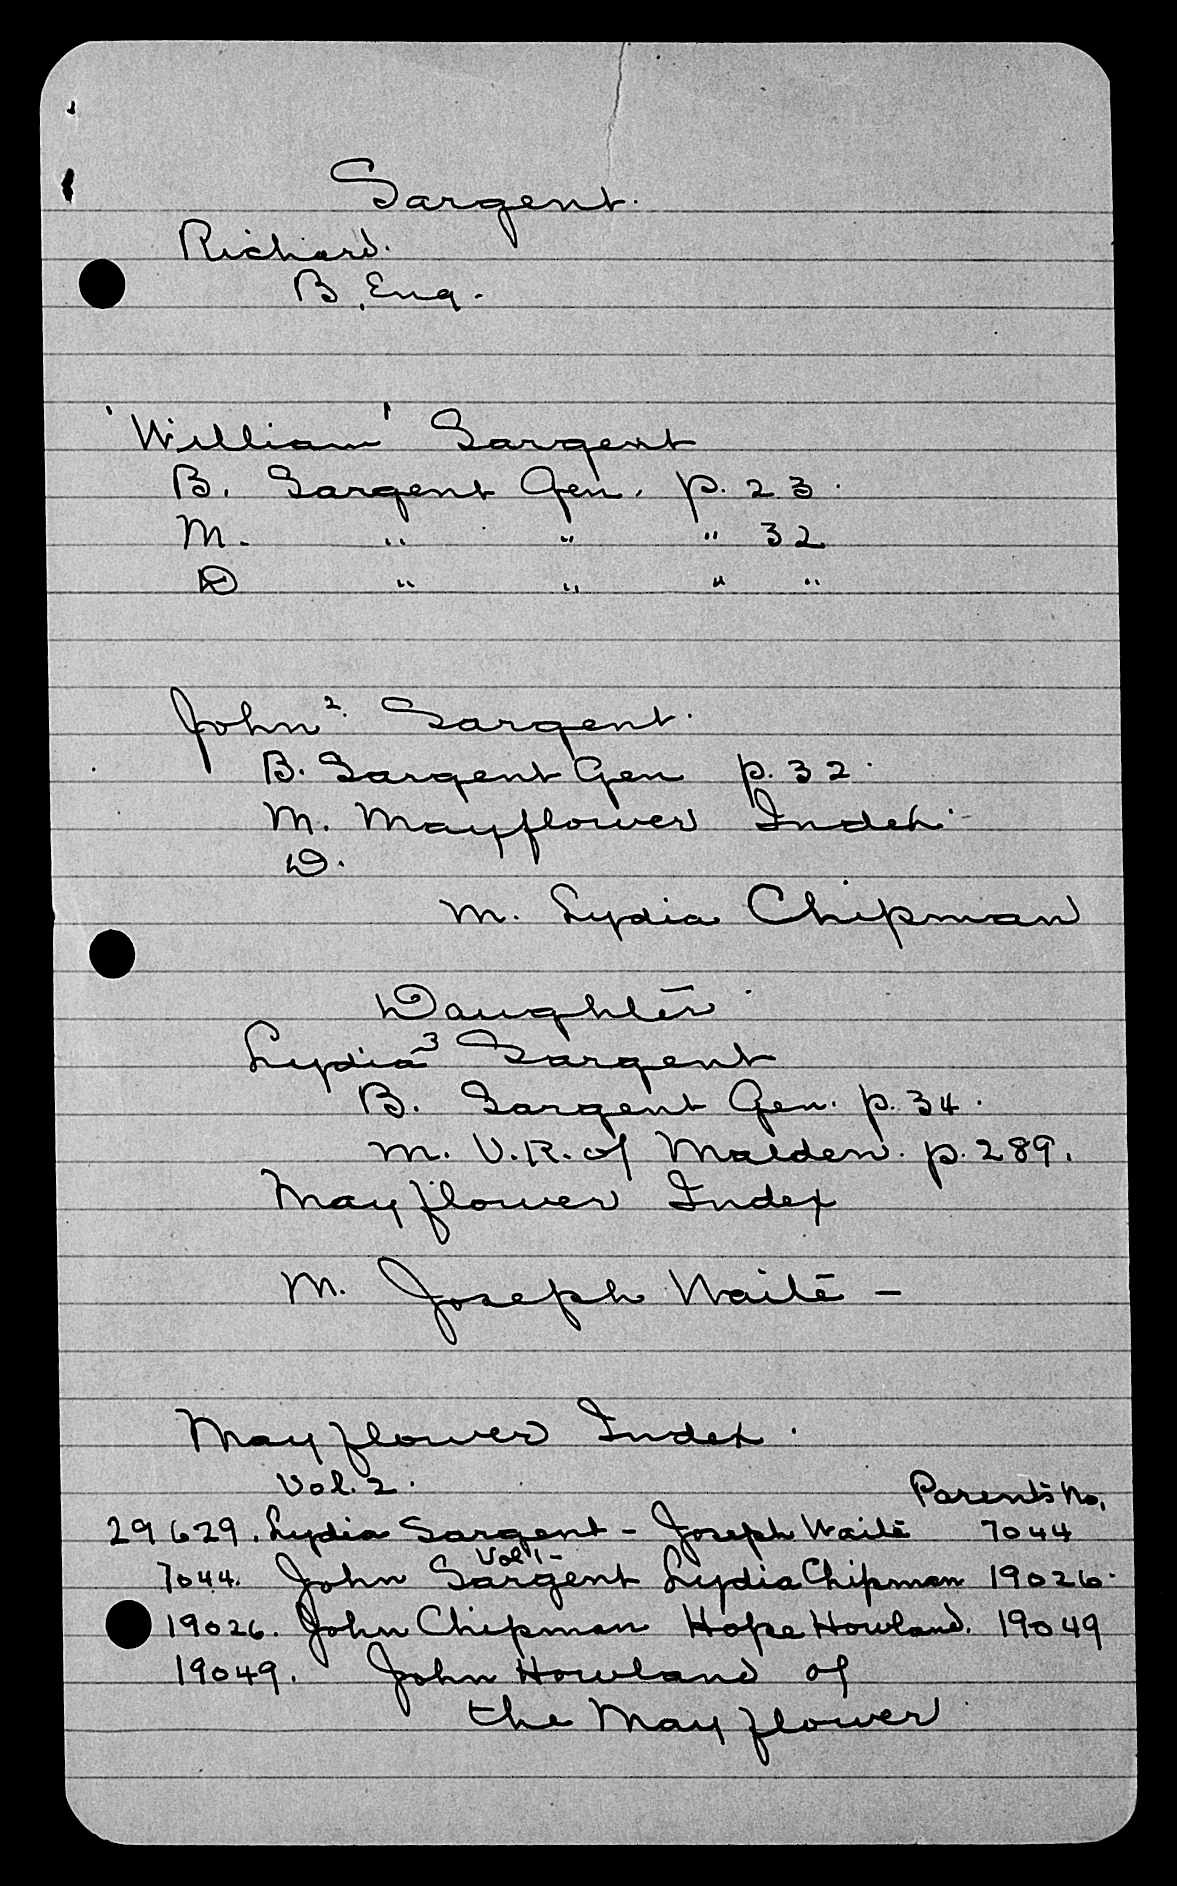 Sargent.
Richard.
B. Eng.
'William' Sargent
B. Sargent Gen. p. 23.
M. " " " 32
D " " " "
John² Sargent.
B. Sargent Gen p. 32.
M. Mayflower Index.
D.
M. Lydia Chipman
Daughter.
Lydia³ Sargent
B. Sargent Gen. p. 34.
M. V.R. of Malden. p. 289.
Mayflower Index
M. Joseph Waite –
Mayflower Index.
Vol. 2. Parents No.
29629. Lydia Sargent – Joseph Waite 7044
Vol 1 –
7044. John Sargent Lydia Chipman 19026.
19026. John Chipman Hope Howland. 19049
19049. John Howland of
the Mayflower